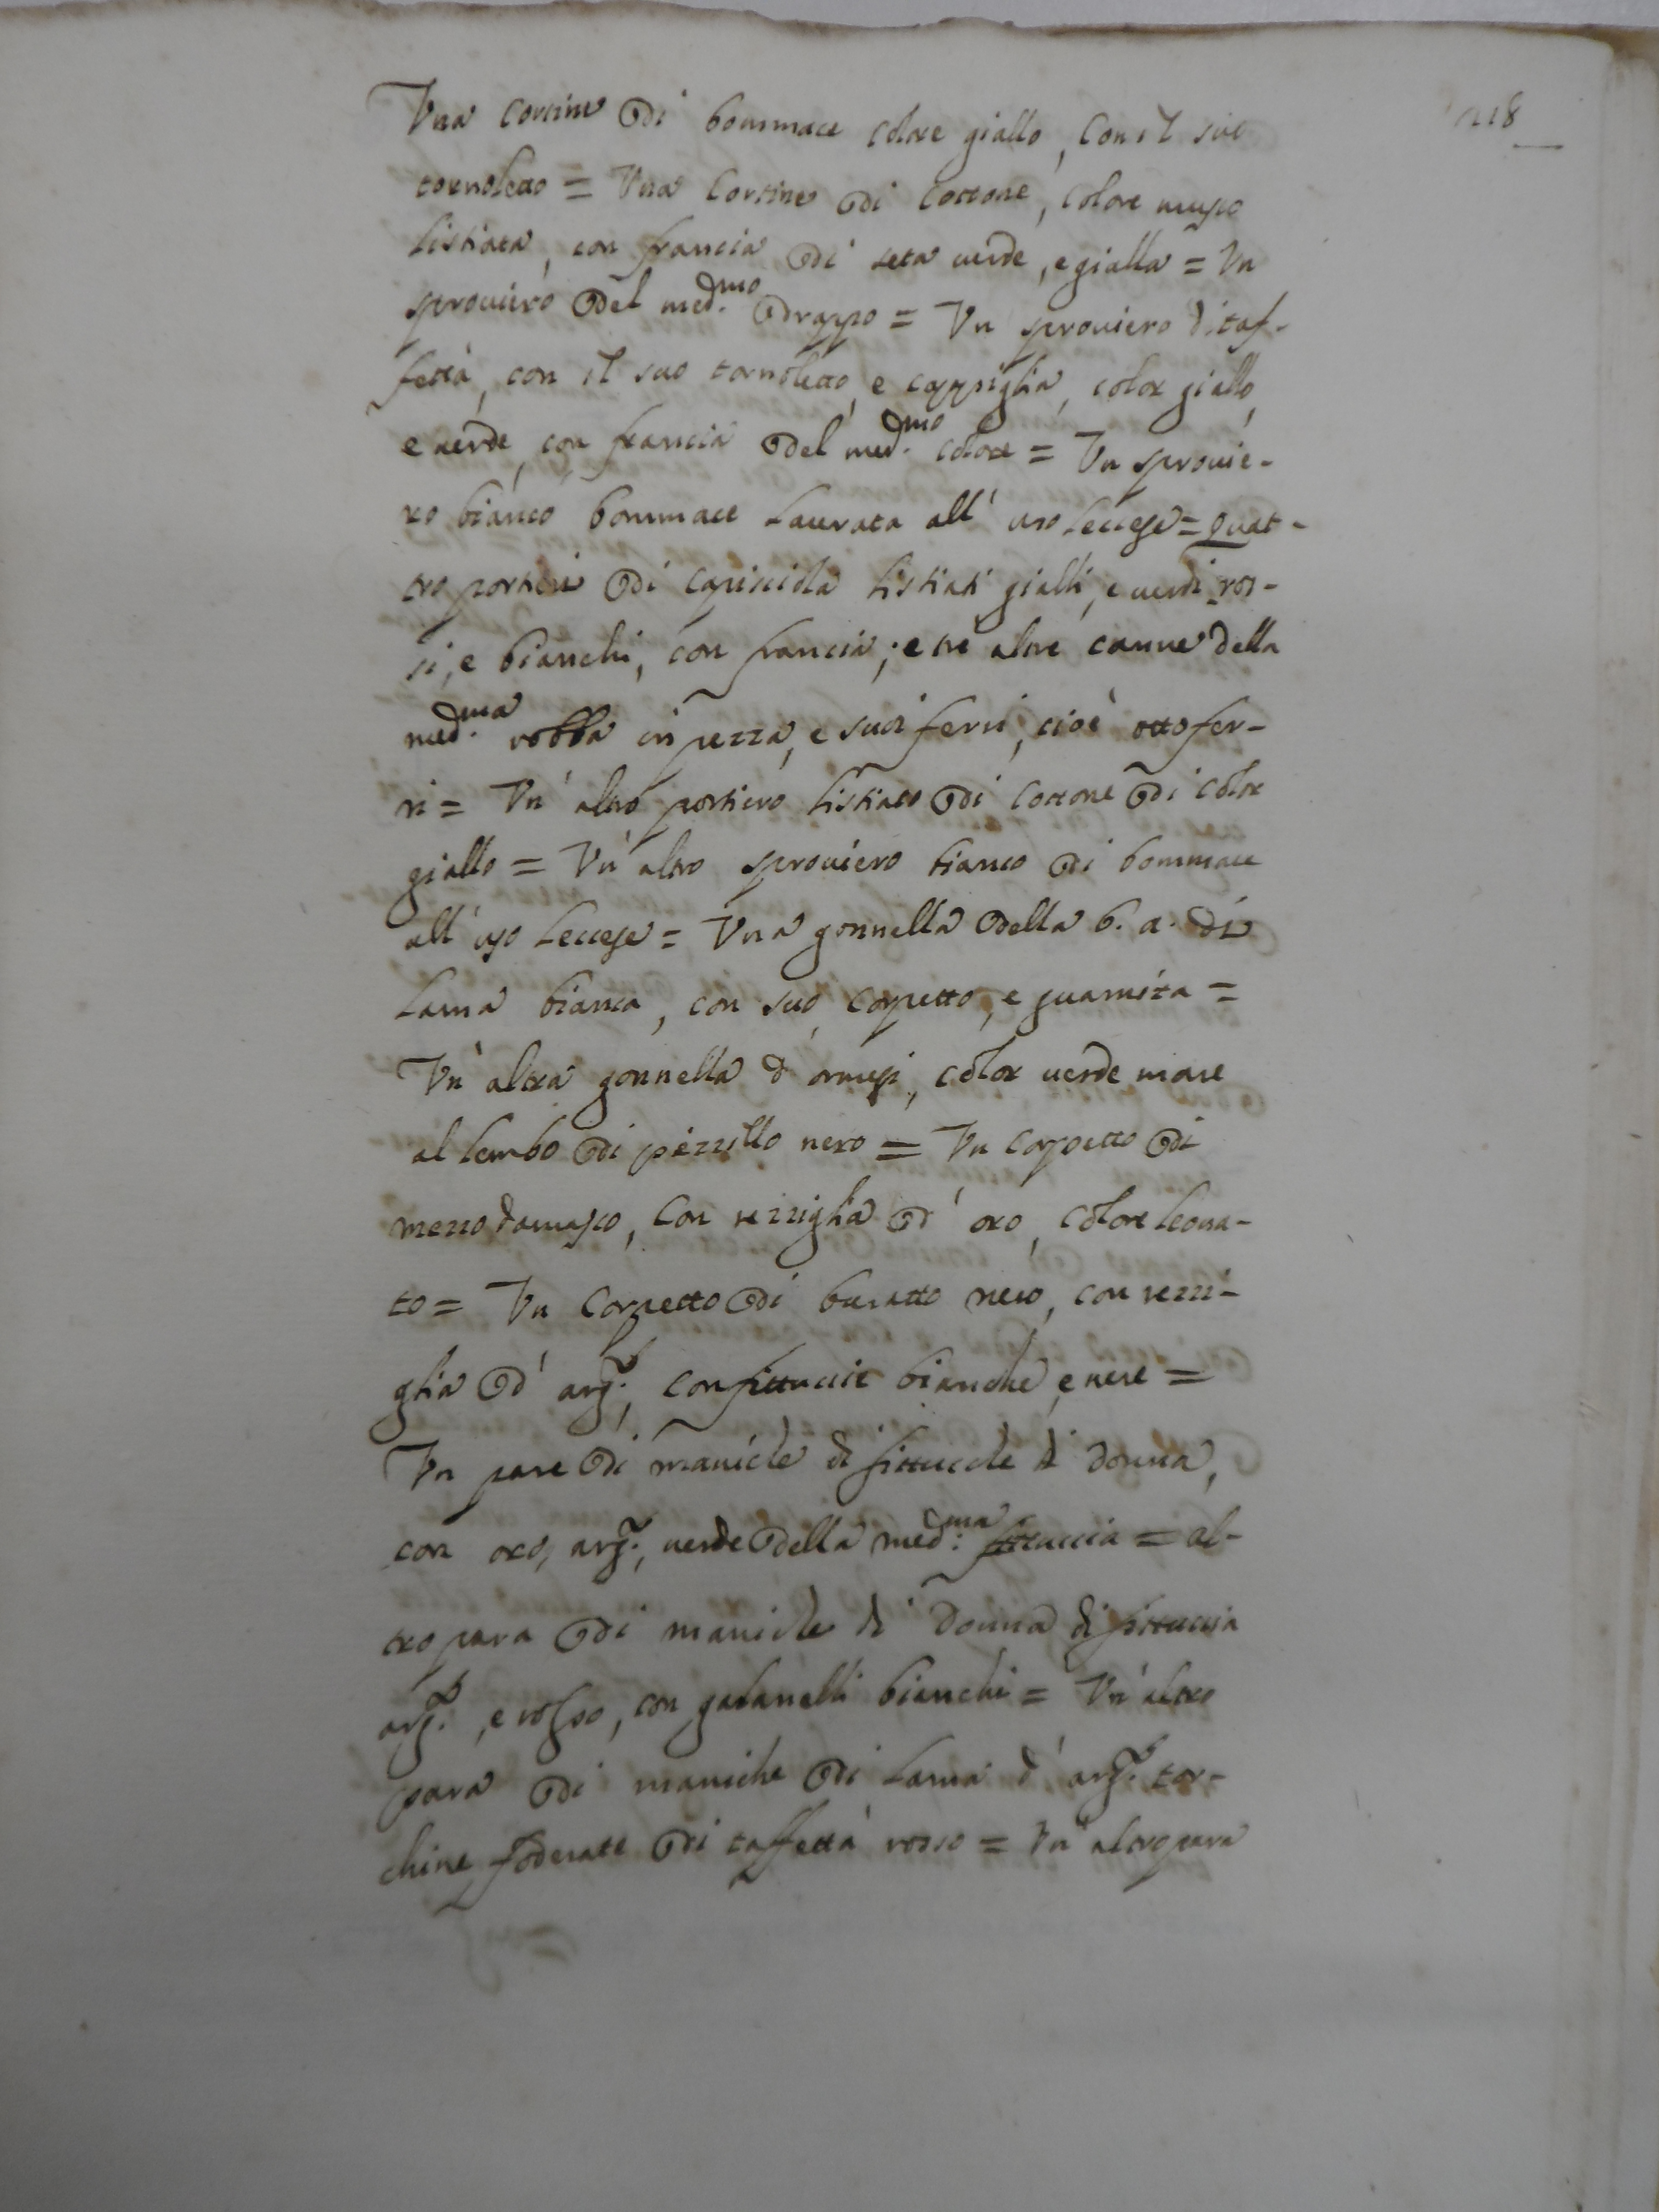 218
Una cortina di bommace colore giallo, con il suo
tornoletto = Una Cortina di Cottone, colore musco
listiata, con francia di seta verde, e gialla = Un
sproviero del med.mo drappo = Un sproviero di taf-
fettà, con il suo tornoletto, e cappiglia, color giallo,
e verde, con francia del med.mo colore = Un sprovie-
ro bianco bommace lavorata all' uso leccese = quat-
tro portieri di capisciola listiati gialli, e verdi, ros-
si, e bianchi, con francia; e tre altre canne della
med.ma robba in pezza, e suoi ferri, cioè otto fer-
ri = Un' altro portiero listiato di Cottone di color
giallo = Un' altro sproviero bianco di bommace
all' uso leccese = Una gonnella della b. a. di
lama bianca, con suo corpetto, e guarnita =
Un' altra gonnella d' ormesi, color verde mare
al lembo di pizzillo nero = Un corpetto di
mezzo damasco, con rezziglia d' oro, colore leona-
to = Un Corpetto di buratto nero, con rezzi-
glia d' arg.to, con fittuccie bianche, e nere =
Un paro di maniche di fittucce di donna,
con oro, arg.to, verde della med.ma fittuccia = al-
tro para di maniche di Donna di fittuccia
arg.to, e rosso, con gabanelli bianchi = Un' altro
para di maniche di lama d' arg.to tor-
chine foderate di taffettà rosso = Un' altro para